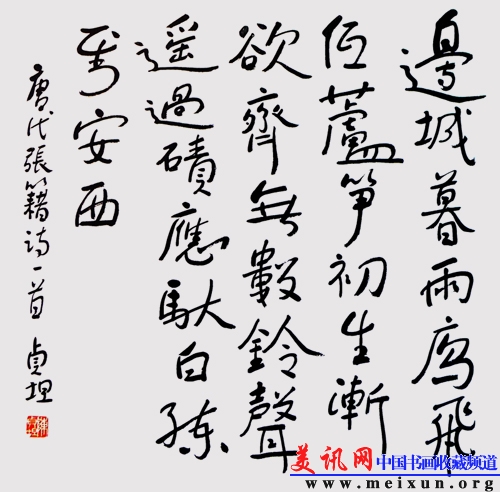 邊城暮雨鴈飛
低蘆笋初生漸
欲齊無數鈴聲
遥過磧應馱白练
到安西
唐代張籍诗一首 貞
美讯网 中国书画收藏频道
www.meixun.org